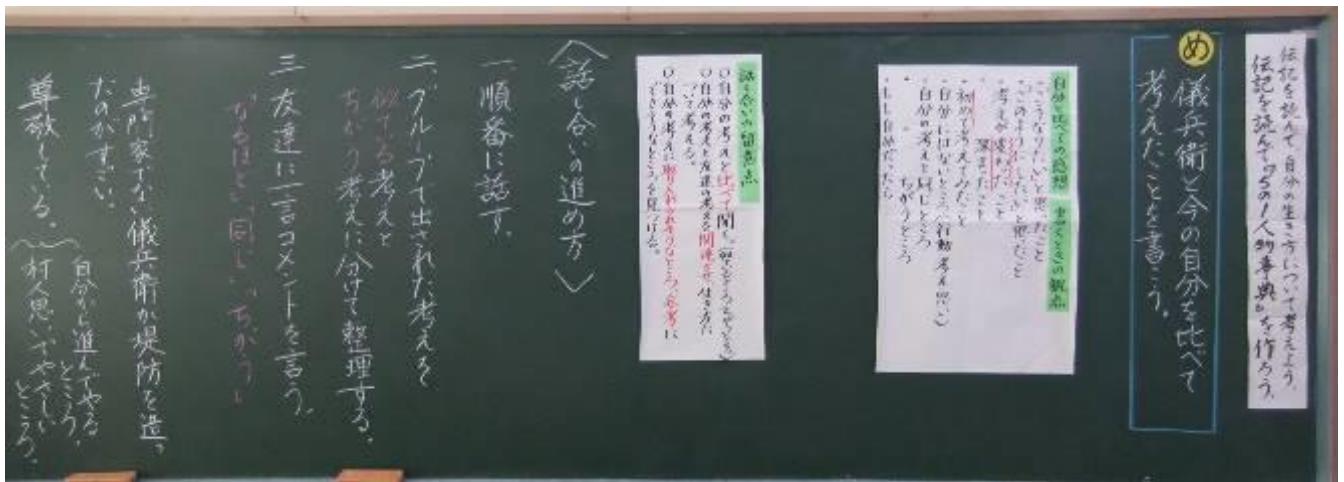 伝記を読んで、自分の生き方について考えよう。
伝記を読んで『5の1人物事典』を作ろう。
め 儀兵衛と今の自分を比べて
考えたことを書こう。
自分と比べての感想 書くときの観点
・「こうなりたい」と思ったこと
・「このようにしたい」と思ったこと
・考えが変わったこと
深まったこと
・初めて考えてみたこと
・自分にはないところ(行動・考え・思い)
・自分の考えと同じところ
ちがうところ
・もし自分だったら
話し合いの留意点
○自分の考えと比べて聞く。
○自分の考えと友達の考えを関連させ、生き方に
ついて考える。
○自分の考えに取り入れられそうなところ、参考に
できそうなところを見つける。
〈話し合いの進め方〉
一 順番に話す。
二、グループで出された考えを
似てる考えと
ちがう考えに分けて整理する。
三 友達に一言コメントを言う。
「なるほど」「同じ」「ちがう」
専門家でない儀兵衛が堤防を造っ
たのがすごい。
尊敬している。
自分から進んでやる
ところ。
村人思いでやさしい
ところ。